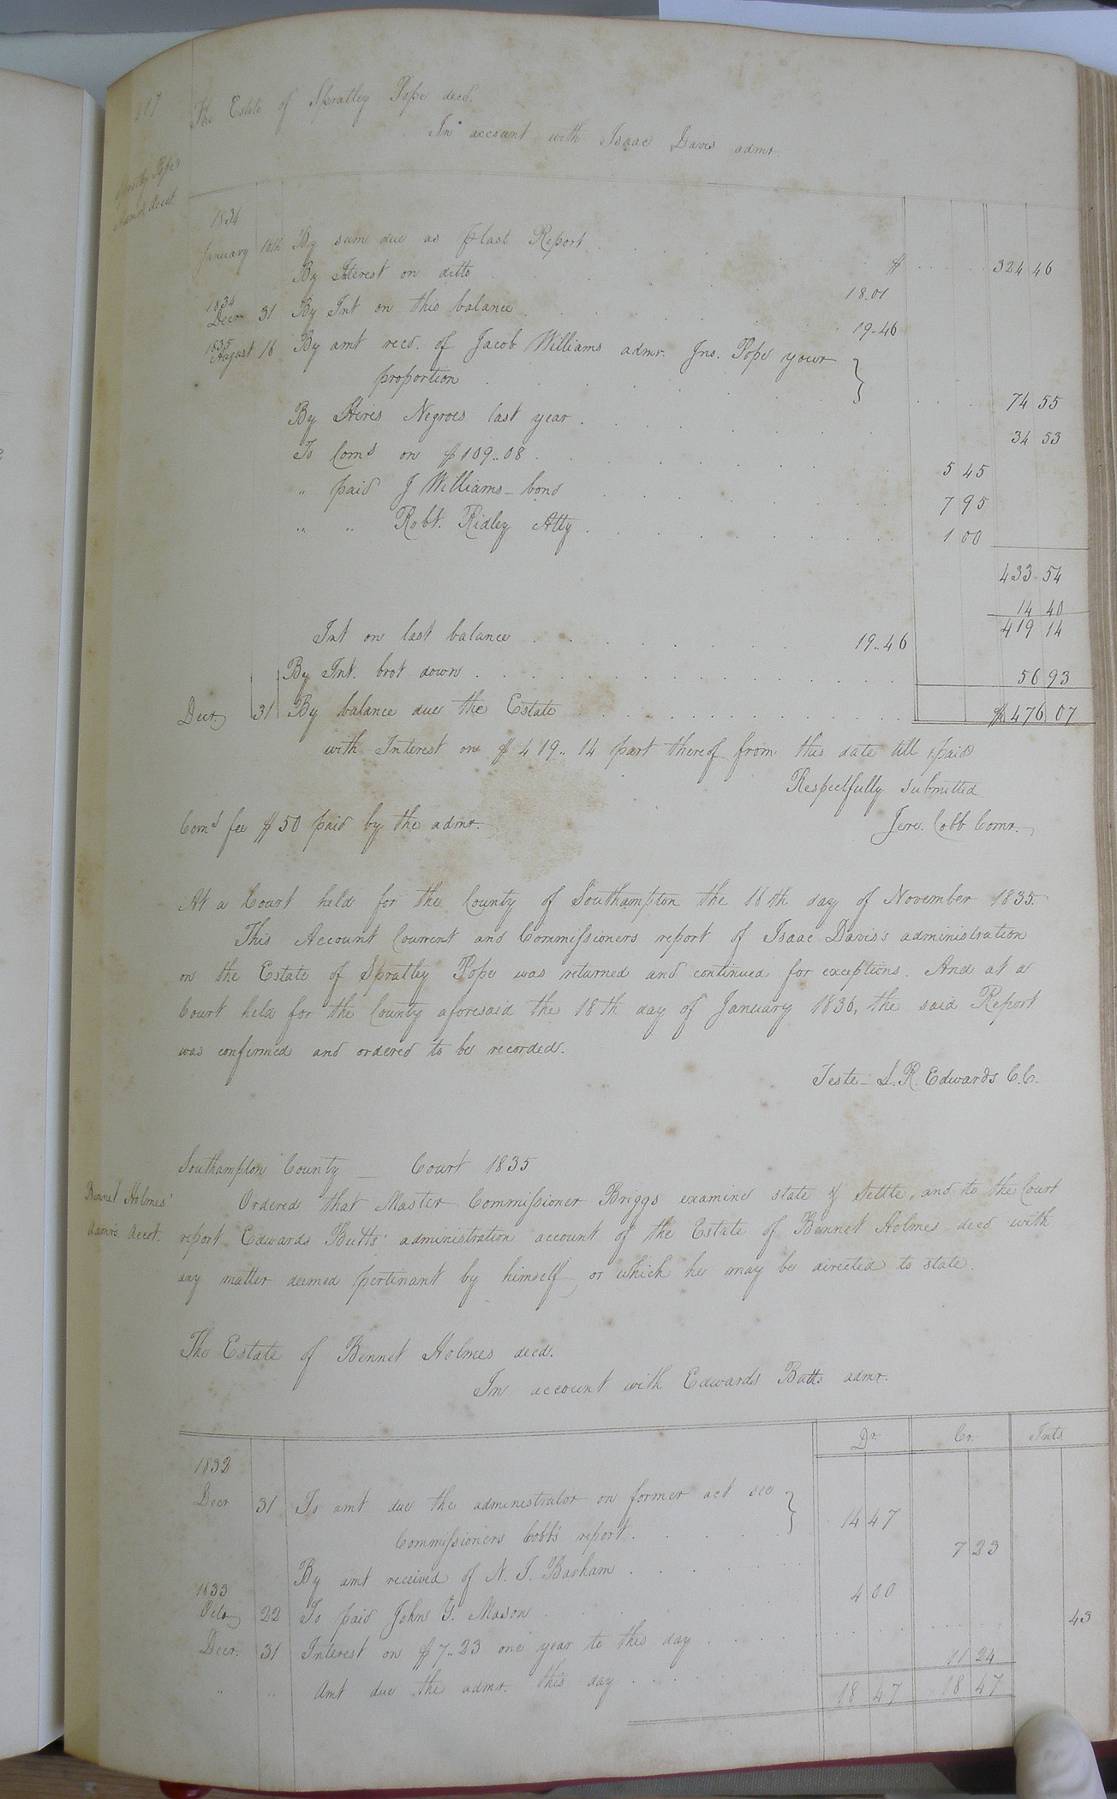 The Estate of Spratley Pope decd.
In account with Isaac Davis admr
Spratley Pope's
1834
January 10th By sum due as pr last Report $ 324 46
By Interest on ditto 18.01
1834
Decr 31 By Int on this balance 19.46
1835
August 16 By amt recd. of Jacob Williams admr. Jno. Pope your
proportion 74 55
By Hires Negroes last year 34 53
To Coms on $109..08 5 45
" paid J Williams bond 7 95
" " Robt. Ridley Atty 1 00
433 54
14 40
419 14
Int on last balance 19..46
By Int. brot down 56 93
Decr 31 By balance due the Estate $ 476 07
with Interest on $419..14 part thereof from this date till paid
Respectfully submitted
Coms fee $50 paid by the admr. Jere. Cobb Comr.
At a Court held for the County of Southampton the 16th day of November 1835.
This Account Current and Commissioners report of Isaac Davis's administration
on the Estate of Spratley Pope was returned and continued for exceptions. And at a
Court held for the County aforesaid the 18th day of January 1836, the said Report
was confirmed and ordered to be recorded.
Teste L. R. Edwards C.C.
Southampton County Court 1835
Bennet Holmes'
Admrs. Accot.
Ordered that Master Commissioner Briggs examine state & settle and to the Court
report Edwards Butts' administration account of the Estate of Bennet Holmes decd with
any matter deemed pertinant by himself, or which he may be directed to state.
The Estate of Bennet Holmes decd.
In account with Edwards Butts admr.
Dr. Cr. Ints
1832
Decr 31 To amt due the administrator on former act see
Commissioners Cobb's report 14 47
By amt received of N. T. Barham 7 23
1833
Octo 22 To paid John Y. Mason 4 00
Decr. 31 Interest on $7..23 one year to this day 43
" " Amt due the admr. this day 11 24
18 47 18 47